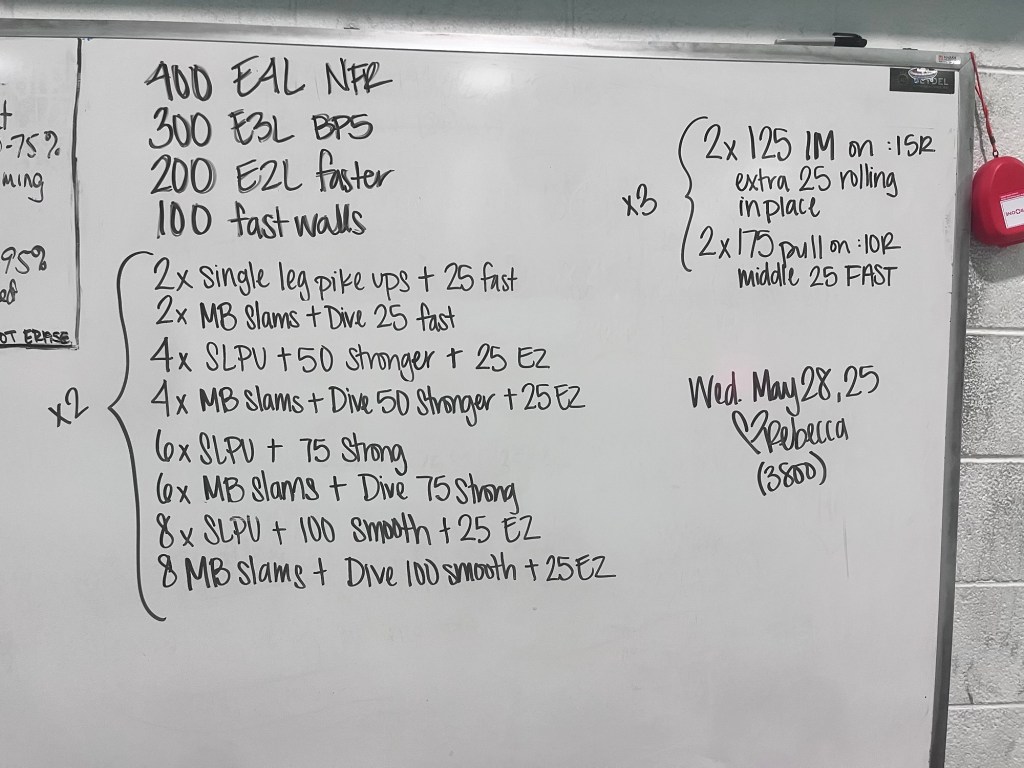 400 E4L NFR
300 E3L BP5
200 E2L faster
100 fast walls
x2
2x single leg pike ups + 25 fast
2x MB Slams + Dive 25 fast
4x SLPU + 50 Stronger + 25 EZ
4x MB Slams + Dive 50 Stronger + 25 EZ
6x SLPU + 75 Strong
6x MB Slams + Dive 75 Strong
8x SLPU + 100 smooth + 25 EZ
8 MB Slams + Dive 100 smooth + 25 EZ
x3
2x 125 IM on :15R
extra 25 rolling
in place
2x 175 pull on :10R
middle 25 FAST
Wed. May 28, 25
♡ Rebecca
(3800)
-75%
ming
95%
OT ERASE